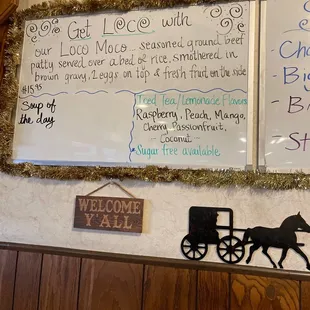 Get Loco with
our Loco Moco.. seasoned ground beef
patty served over a bed of rice, smothered in
brown gravy, 2 eggs on top & fresh fruit on the side
$15.95
Soup of
the day
Iced Tea/Lemonade Flavors
Raspberry, Peach, Mango,
Cherry Passionfruit,
Coconut
*Sugar free available
Big
WELCOME
Y'ALL